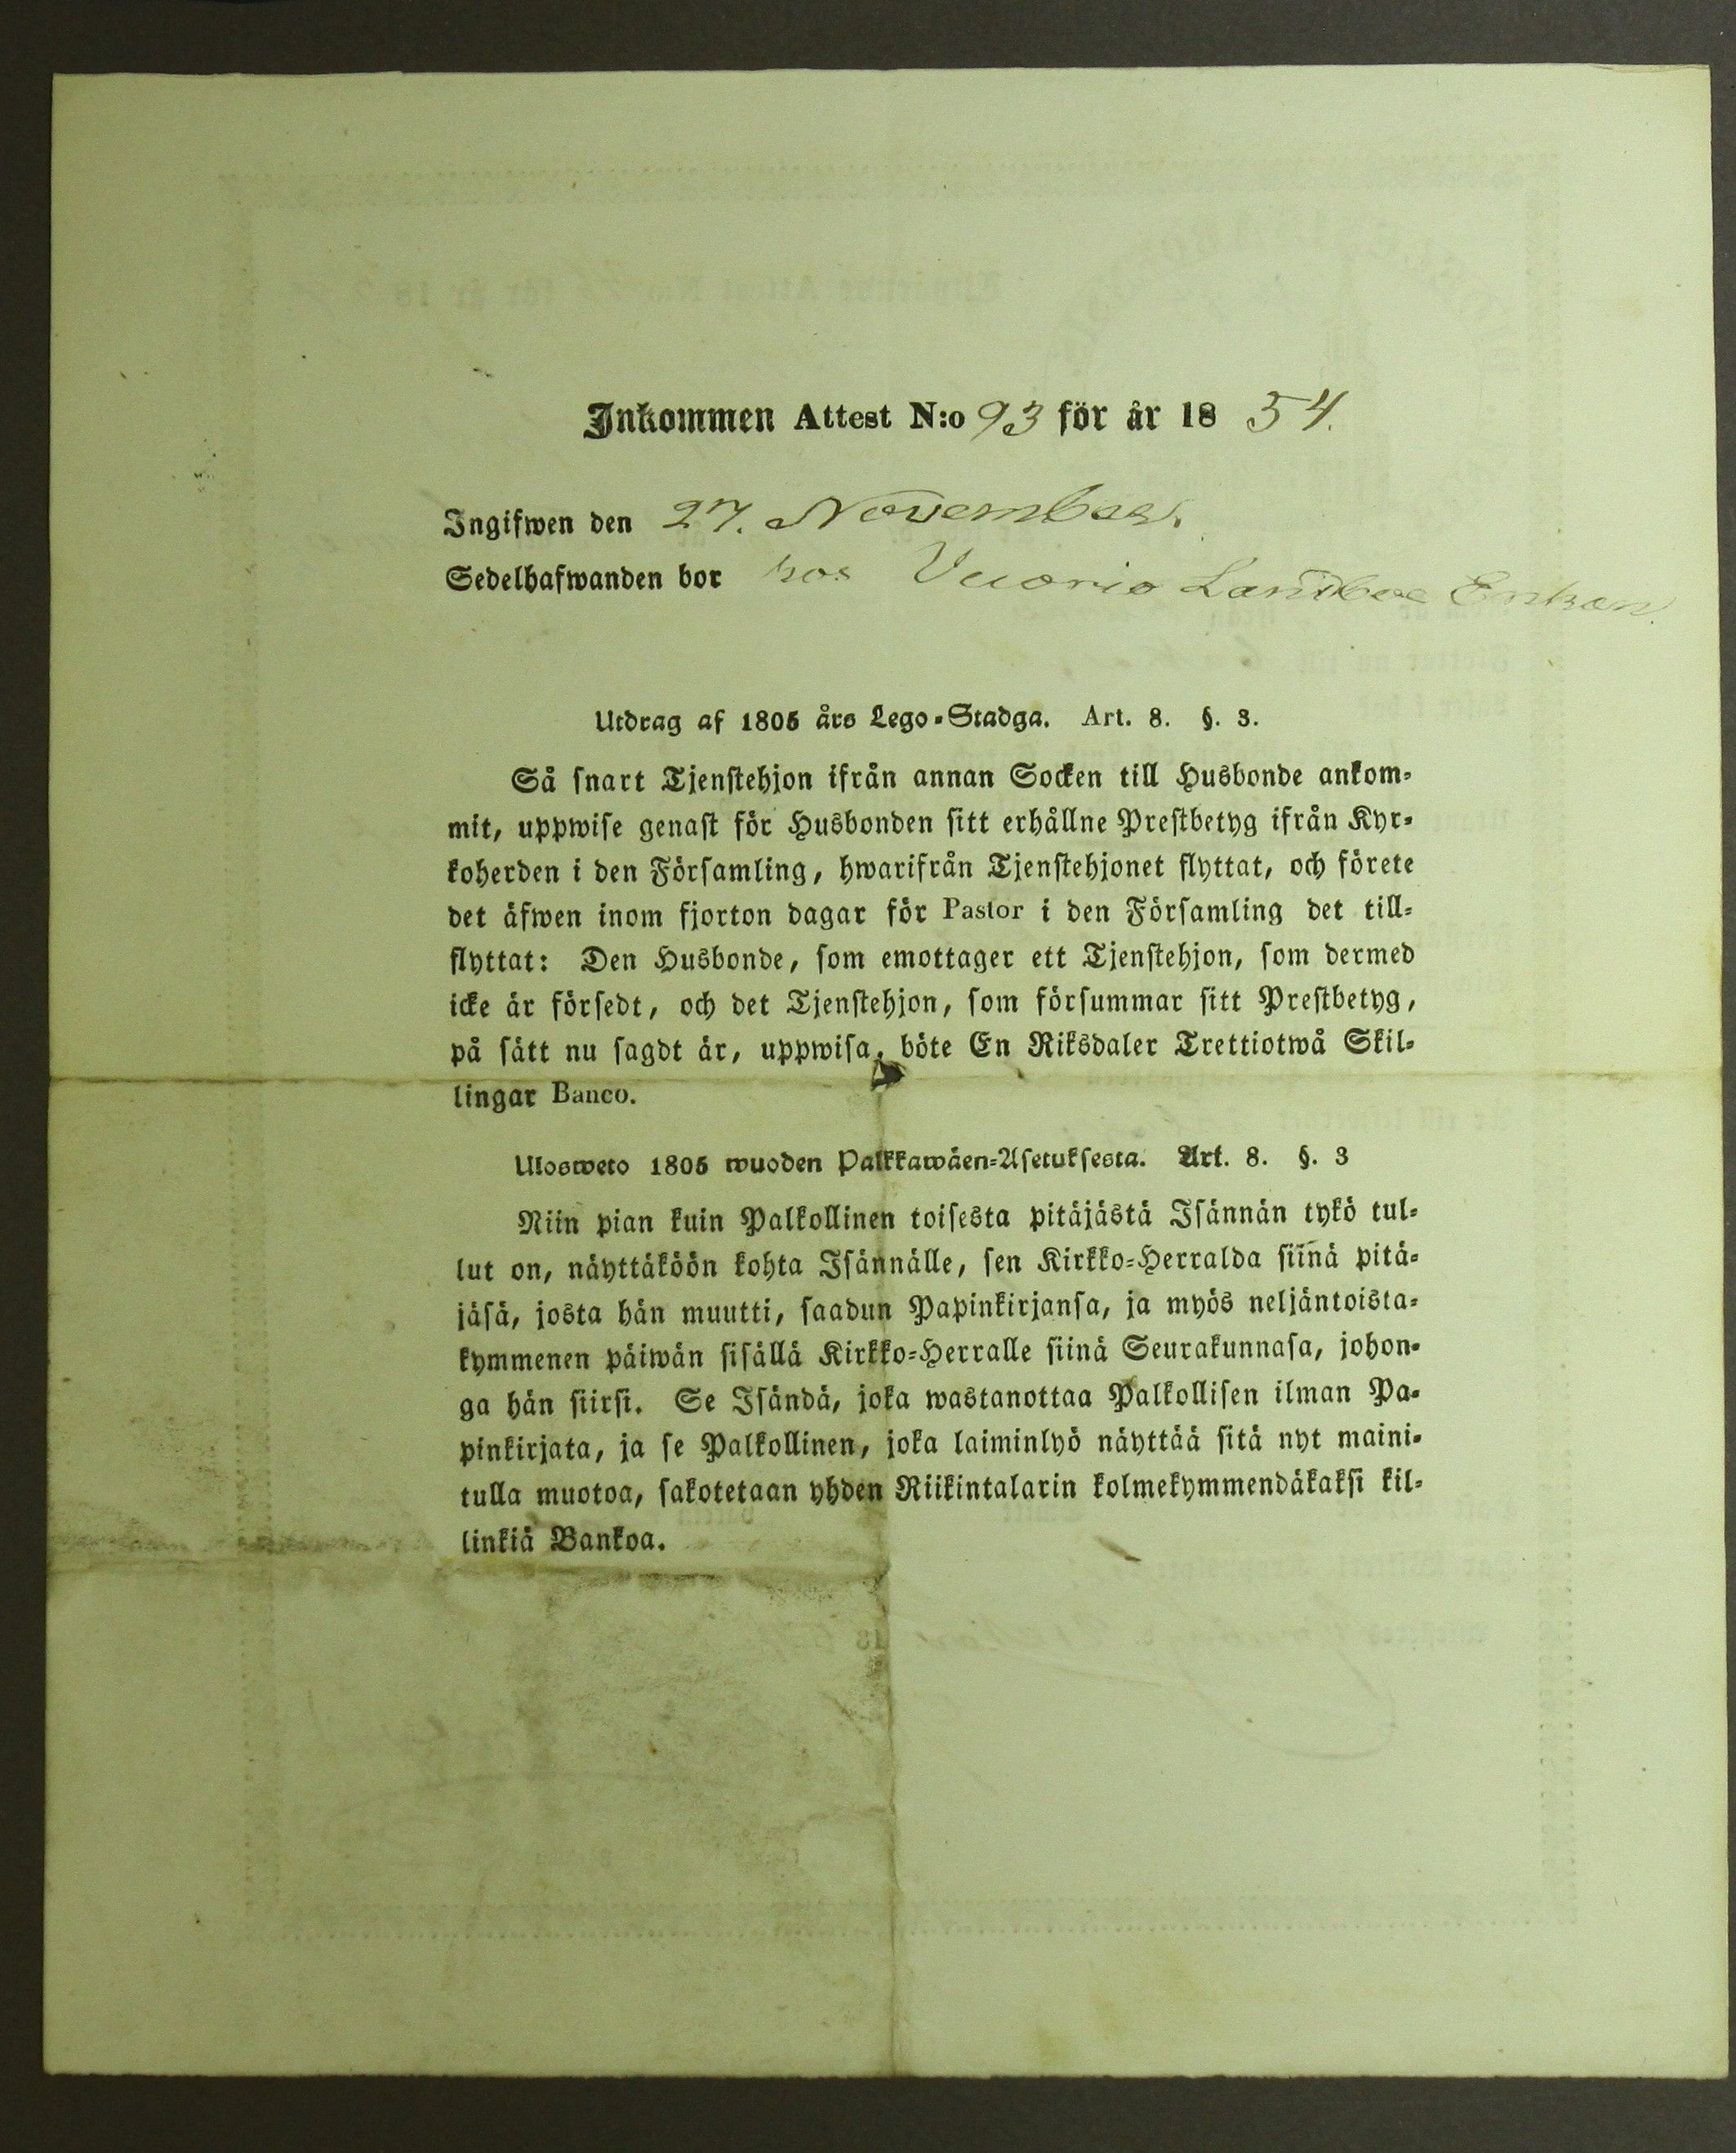 Inkommen Attest N:o 93 för år 18 54.
Ingifwen den 27. November.
Sedelhafwanden bor hos Vuorio Landboe Enkan.
Utdrag af 1805 års Lego-Stadga. Art. 8. §. 3.
Så snart Tjenstehjon ifrån annan Socken till Husbonde ankom-
mit, uppwise genast för Husbonden sitt erhållne Prestbetyg ifrån Kyr-
koherden i den Församling, hwarifrån Tjenstehjonet flyttat, och förete
det äfwen inom fjorton dagar för Pastor i den Församling det till-
flyttat: Den Husbonde, som emottager ett Tjenstehjon, som dermed
icke är försedt, och det Tjenstehjon, som försummar sitt Prestbetyg,
på sätt nu sagdt är, uppwisa, böte En Riksdaler Trettiotwå Skil-
lingar Banco.
Ulosweto 1805 wuoden Palkkawäen-Asetuksesta. Art. 8. §. 3
Niin pian kuin Palkollinen toisesta pitäjästä Isännän tykö tul-
lut on, näyttäköön kohta Isännälle, sen Kirkko-Herralda siinä pitä-
jäsä, josta hän muutti, saadun Papinkirjansa, ja myös neljäntoista-
kymmenen päiwän sisällä Kirkko-Herralle siinä Seurakunnasa, johon-
ga hän siirsi. Se Isändä, joka wastanottaa Palkollisen ilman Pa-
pinkirjata, ja se Palkollinen, joka laiminlyö näyttää sitä nyt maini-
tulla muotoa, sakotetaan yhden Riikintalarin kolmekymmendäkaksi kil-
linkiä Bankoa.